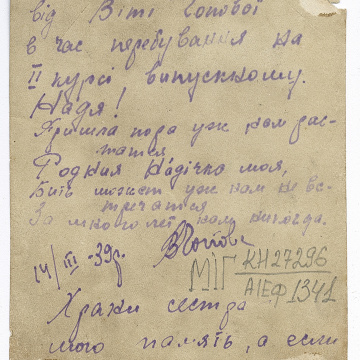 від Віті Попової
в час перебування на
II курсі випускному.
Надя!
Пришла пора уж нам рас-
таться
Родная Надічка моя,
Бить может уж нам не вс-
третатся
За много лет нам никогда.
14/III -39г. ВПопова
МІГ КН27296
АІЕФ1341
Храни сестра
мою память, а если